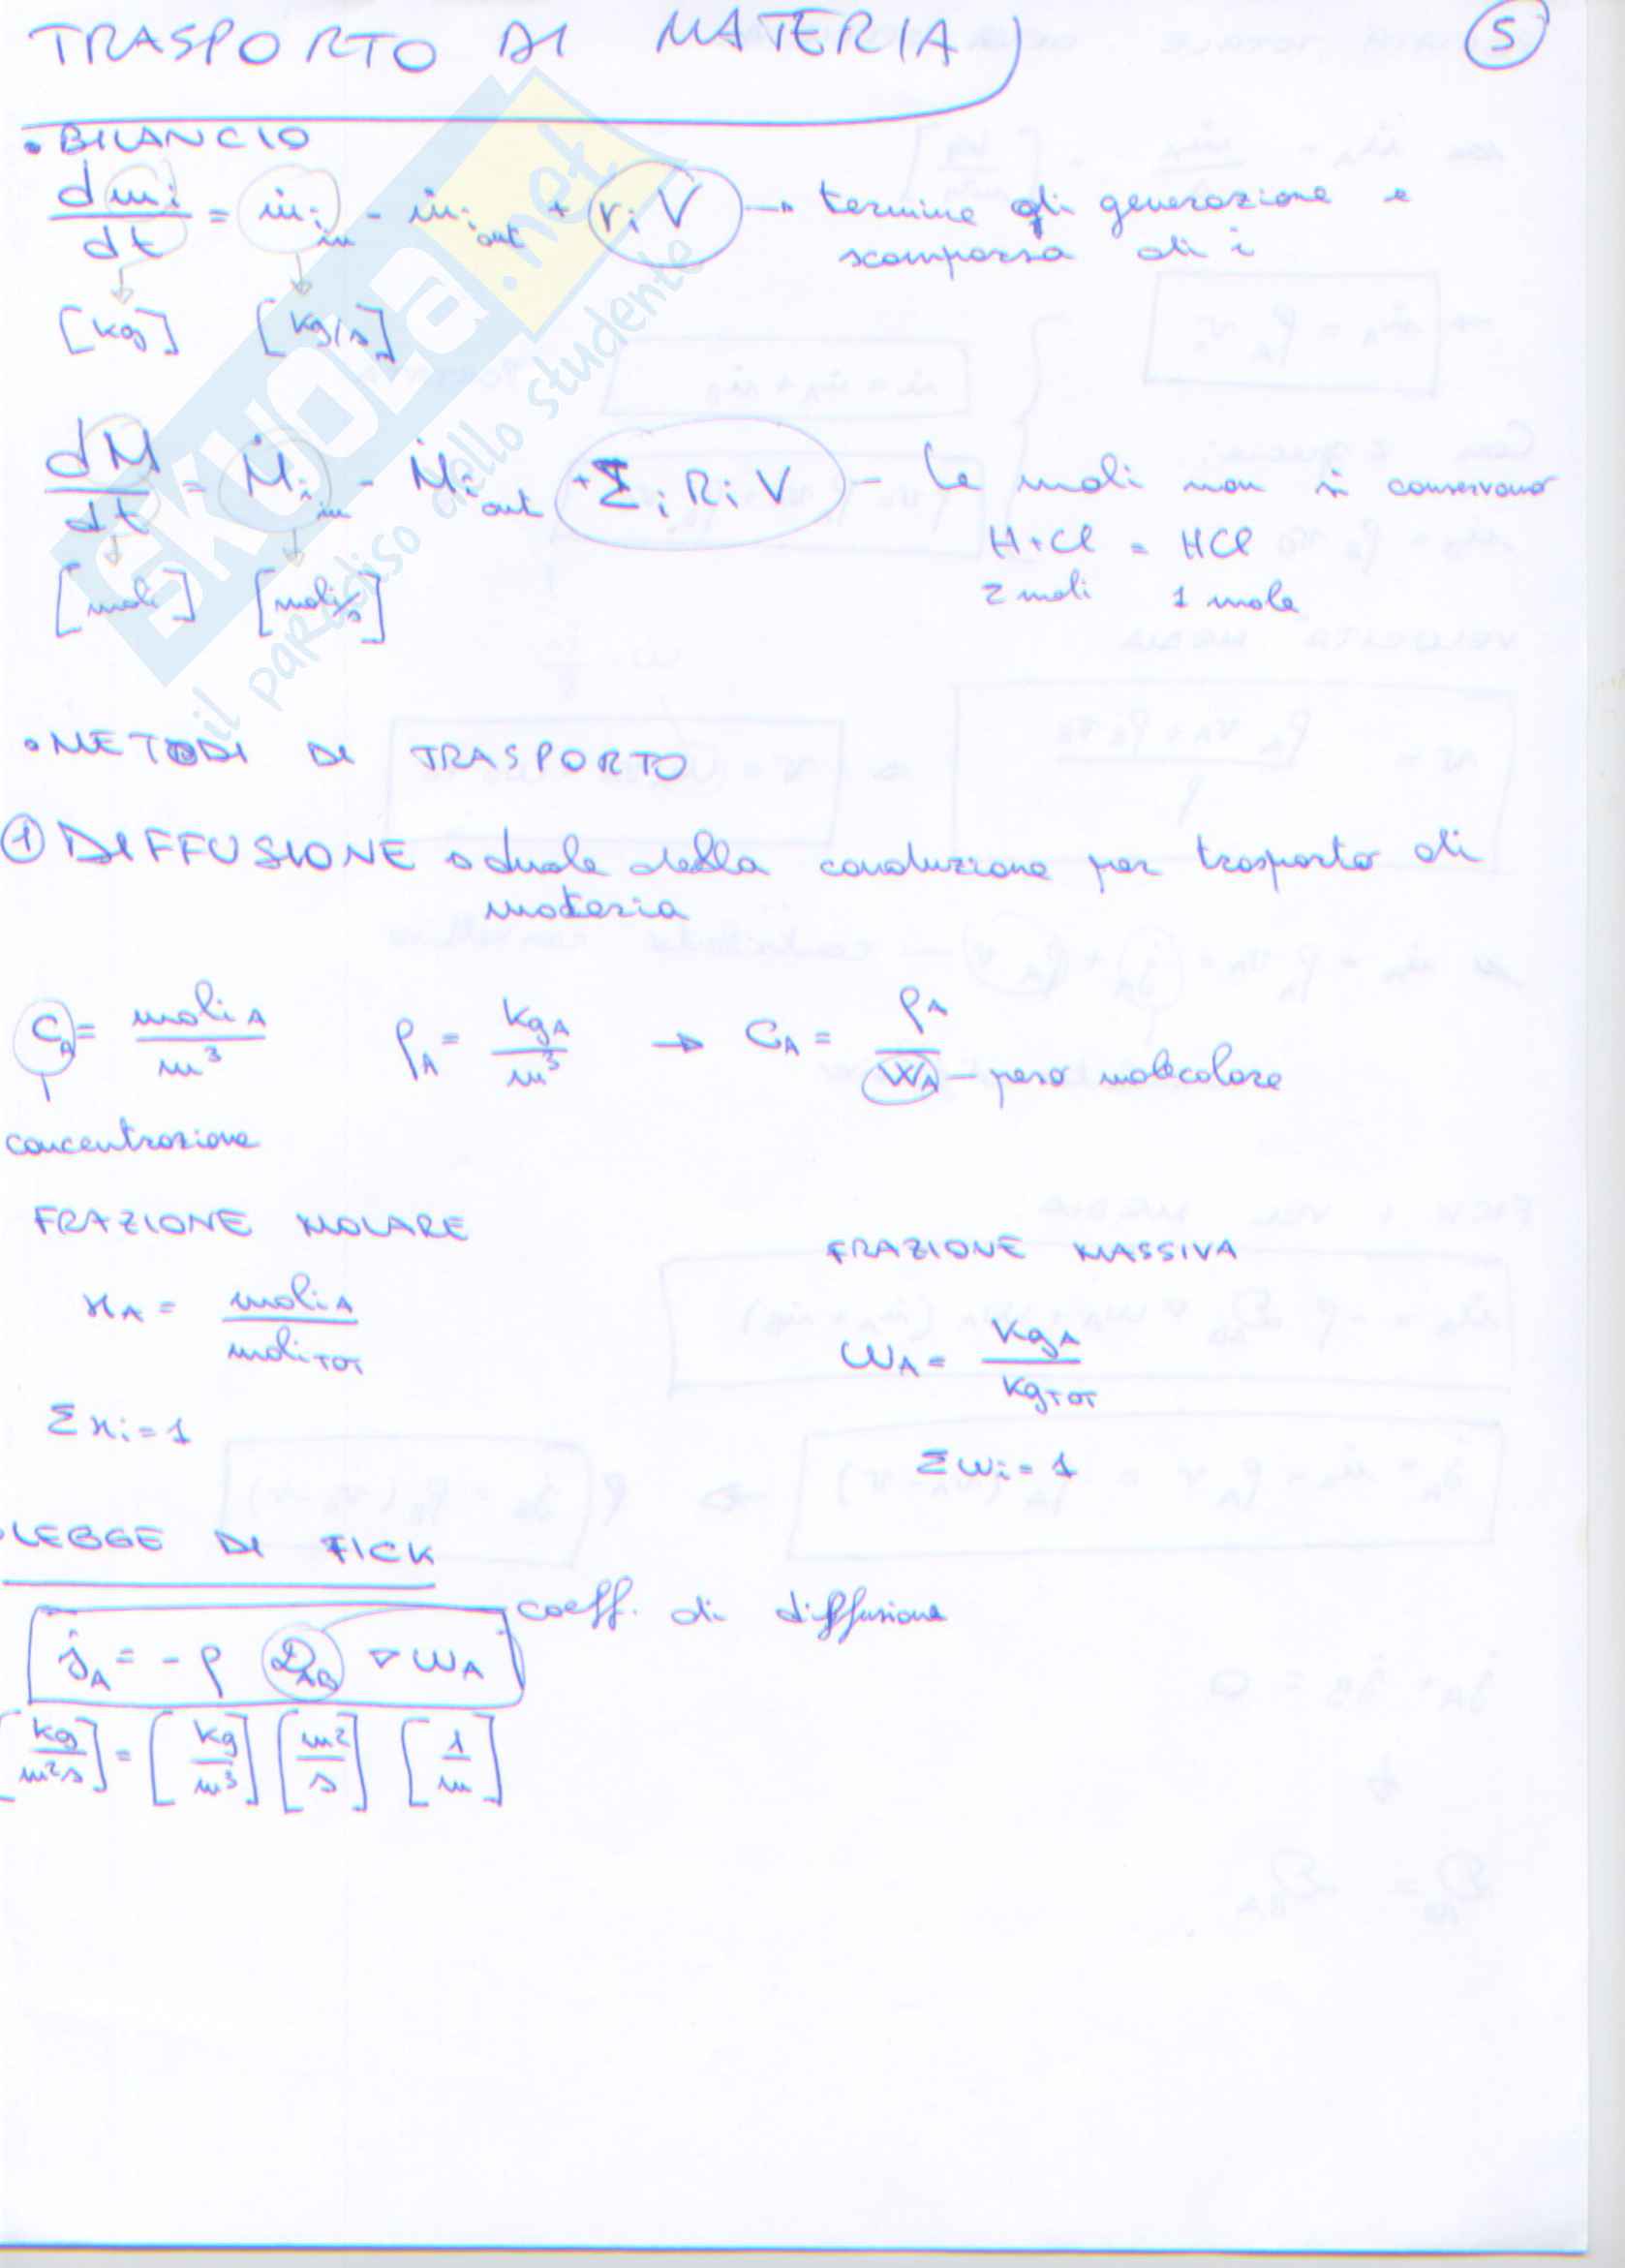 TRASPORTO DI MATERIA
5
• BILANCIO
dmi/dt = ṁi in - ṁi out + ri V → termine di generazione e
scomparsa di i
[kg] [kg/s]
dM/dt = Ṁi in - Ṁi out + Σi Ri V - Le moli non si conservano
H+Cl = HCl
2 moli 1 mole
[moli] [moli/s]
• METODI DI TRASPORTO
① DIFFUSIONE → duale della conduzione per trasporto di
materia
CA = moliA/m³ ρA = kgA/m³ → CA = ρA/WA - peso molecolare
concentrazione
FRAZIONE MOLARE
FRAZIONE MASSIVA
xA = moliA/moliTOT
ωA = kgA/kgTOT
Σxi = 1
Σωi = 1
• LEGGE DI FICK
coeff. di diffusione
jA = - ρ DAB ∇ωA
[kg/m²s] = [kg/m³] [m²/s] [1/m]
SKUOLA.net
il paradiso dello studente